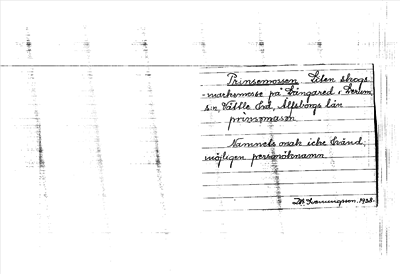 Prinsemossen Liten skogs
-markmosse på Långared, Lerum
s:n, Vättle hd, Älfsborgs län
prinsmasn
Namnets orsak icke känd,
möjligen personöknamn
1938